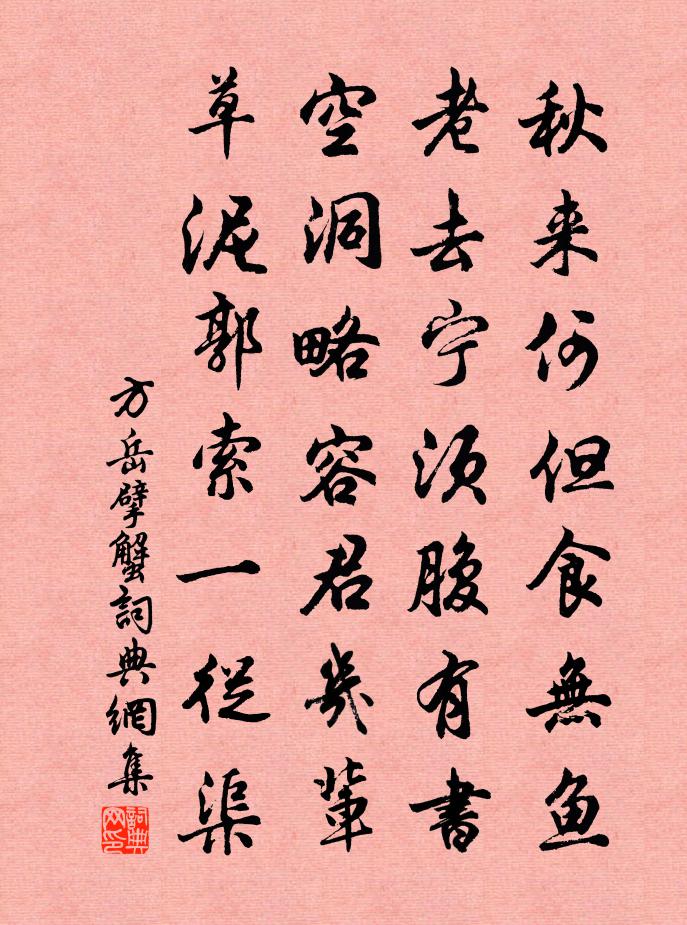 秋来何但食無鱼
老去宁须腹有書
空洞略容君幾輩
草泥郭索一從渠
方岳擘蟹詞典網集
詞典网印